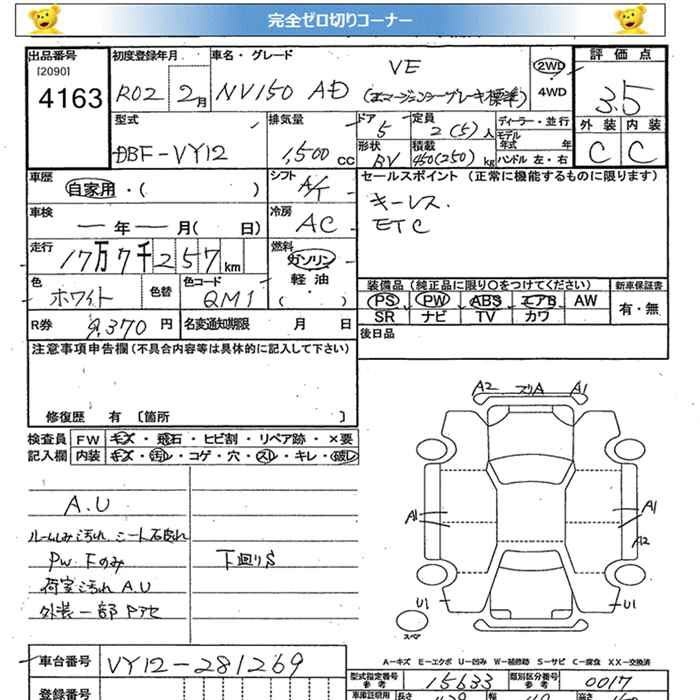 完全ゼロ切りコーナー
出品番号 初度登録年月 車名・グレード 評価点
[2090] VE 2WD
4163 R02 2月 NV150 AD (エマージェンシーブレーキ標準) 4WD 3.5
型式 排気量 ドア 定員 ディーラー・並行 外装 内装
5 2(5)人 モデル年式 年
DBF-VY12 1,500cc 形状 積載 C C
BV 450(250)kg ハンドル 左・右
車歴 シフト セールスポイント(正常に機能するものに限ります)
自家用・( ) A/T キーレス.
車検 冷房 ETC
ー年ー月(ー日) AC
走行 燃料
17万7千257km ガソリン
軽油
色 色替 色コード ( ・ ) 装備品(純正品に限り○をつけてください) 新車保証書
ホワイト QM1 PS PW ABS エアB AW 有・無
SR ナビ TV カワ
R券 9,370円 名変通知期限 月 日 後日品
注意事項申告欄(不具合内容等は具体的に記入して下さい)
修復歴 有 〔箇所 〕
検査員 FW キズ・飛石・ヒビ割・リペア跡・×要
記入欄 内装 キズ・汚レ・コゲ・穴・スレ・キレ・破レ
A2 スリA A1
A1 A1
A2
U1 U1
スペア
A.U
ルームしみ汚れ シート石汚れ
PW Fのみ 下廻りS
荷室汚れ A.U
外装一部Pアセ
A-キズ E-エクボ U-凹み W-補修跡 S-サビ C-腐食 XX-交換済
車台番号 VY12-281269
型式指定番号 参考 15633 類別区分番号 参考 0017
登録番号 車庫証明用 長さ 幅 高さ